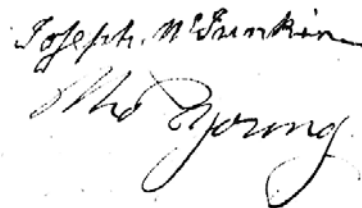 Joseph. McJunkin
Tho Young